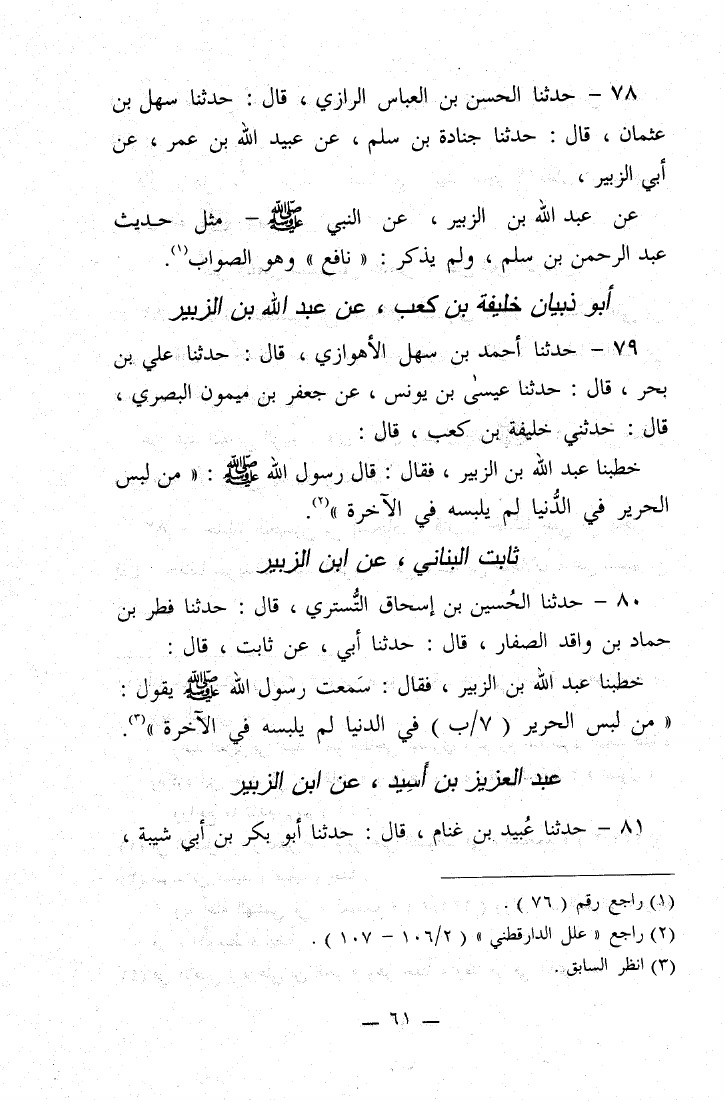 ٧٨ – حدثنا الحسن بن العباس الرازي ، قال : حدثنا سهل بن
عثمان ، قال : حدثنا جنادة بن سلم ، عن عبيد الله بن عمر ، عن
أبي الزبير ،
عن عبد الله بن الزبير ، عن النبي ﷺ – مثل حديث
عبد الرحمن بن سلم ، ولم يذكر : « نافع » وهو الصواب(١).
أبو ذبيان خليفة بن كعب ، عن عبد الله بن الزبير
٧٩ – حدثنا أحمد بن سهل الأهوازي ، قال : حدثنا علي بن
بحر ، قال : حدثنا عيسىٰ بن يونس ، عن جعفر بن ميمون البصري ،
قال : حدثني خليفة بن كعب ، قال :
خطبنا عبد الله بن الزبير ، فقال : قال رسول الله ﷺ : « من لبس
الحرير في الدُّنيا لم يلبسه في الآخرة »(٢).
ثابت البناني ، عن ابن الزبير
٨٠ – حدثنا الحُسين بن إسحاق التُّستري ، قال : حدثنا فطر بن
حماد بن واقد الصفار ، قال : حدثنا أبي ، عن ثابت ، قال :
خطبنا عبد الله بن الزبير ، فقال : سَمعت رسول الله ﷺ يقول :
« من لبس الحرير ( ٧/ب ) في الدنيا لم يلبسه في الآخرة »(٣).
عبد العزيز بن أَسِيد ، عن ابن الزبير
٨١ – حدثنا عُبيد بن غنام ، قال : حدثنا أبو بكر بن أبي شيبة ،
(١) راجع رقم ( ٧٦ ) .
(٢) راجع « علل الدارقطني » ( ١٠٦/٢ – ١٠٧ ) .
(٣) انظر السابق .
— ٦١ —